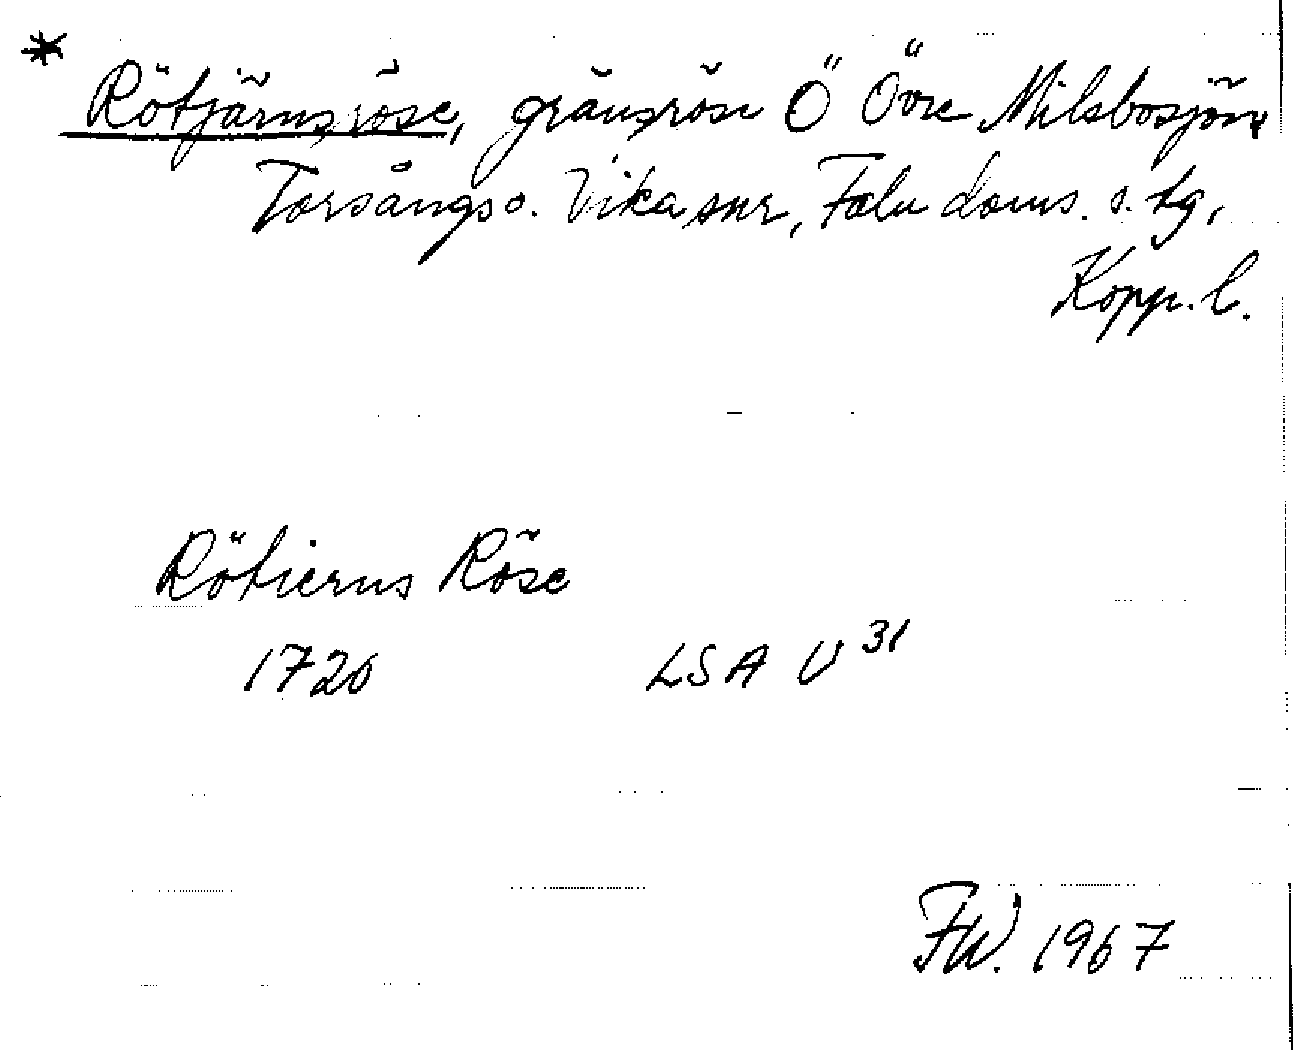 * Rötjärnsröse, gränsröse Ö Övre Milsbosjön,
Torsångs o. Vika snr, Falu doms. s. tg,
Kopp. l.
Rötierns Röse
1720 LSA U 31
FW. 1967